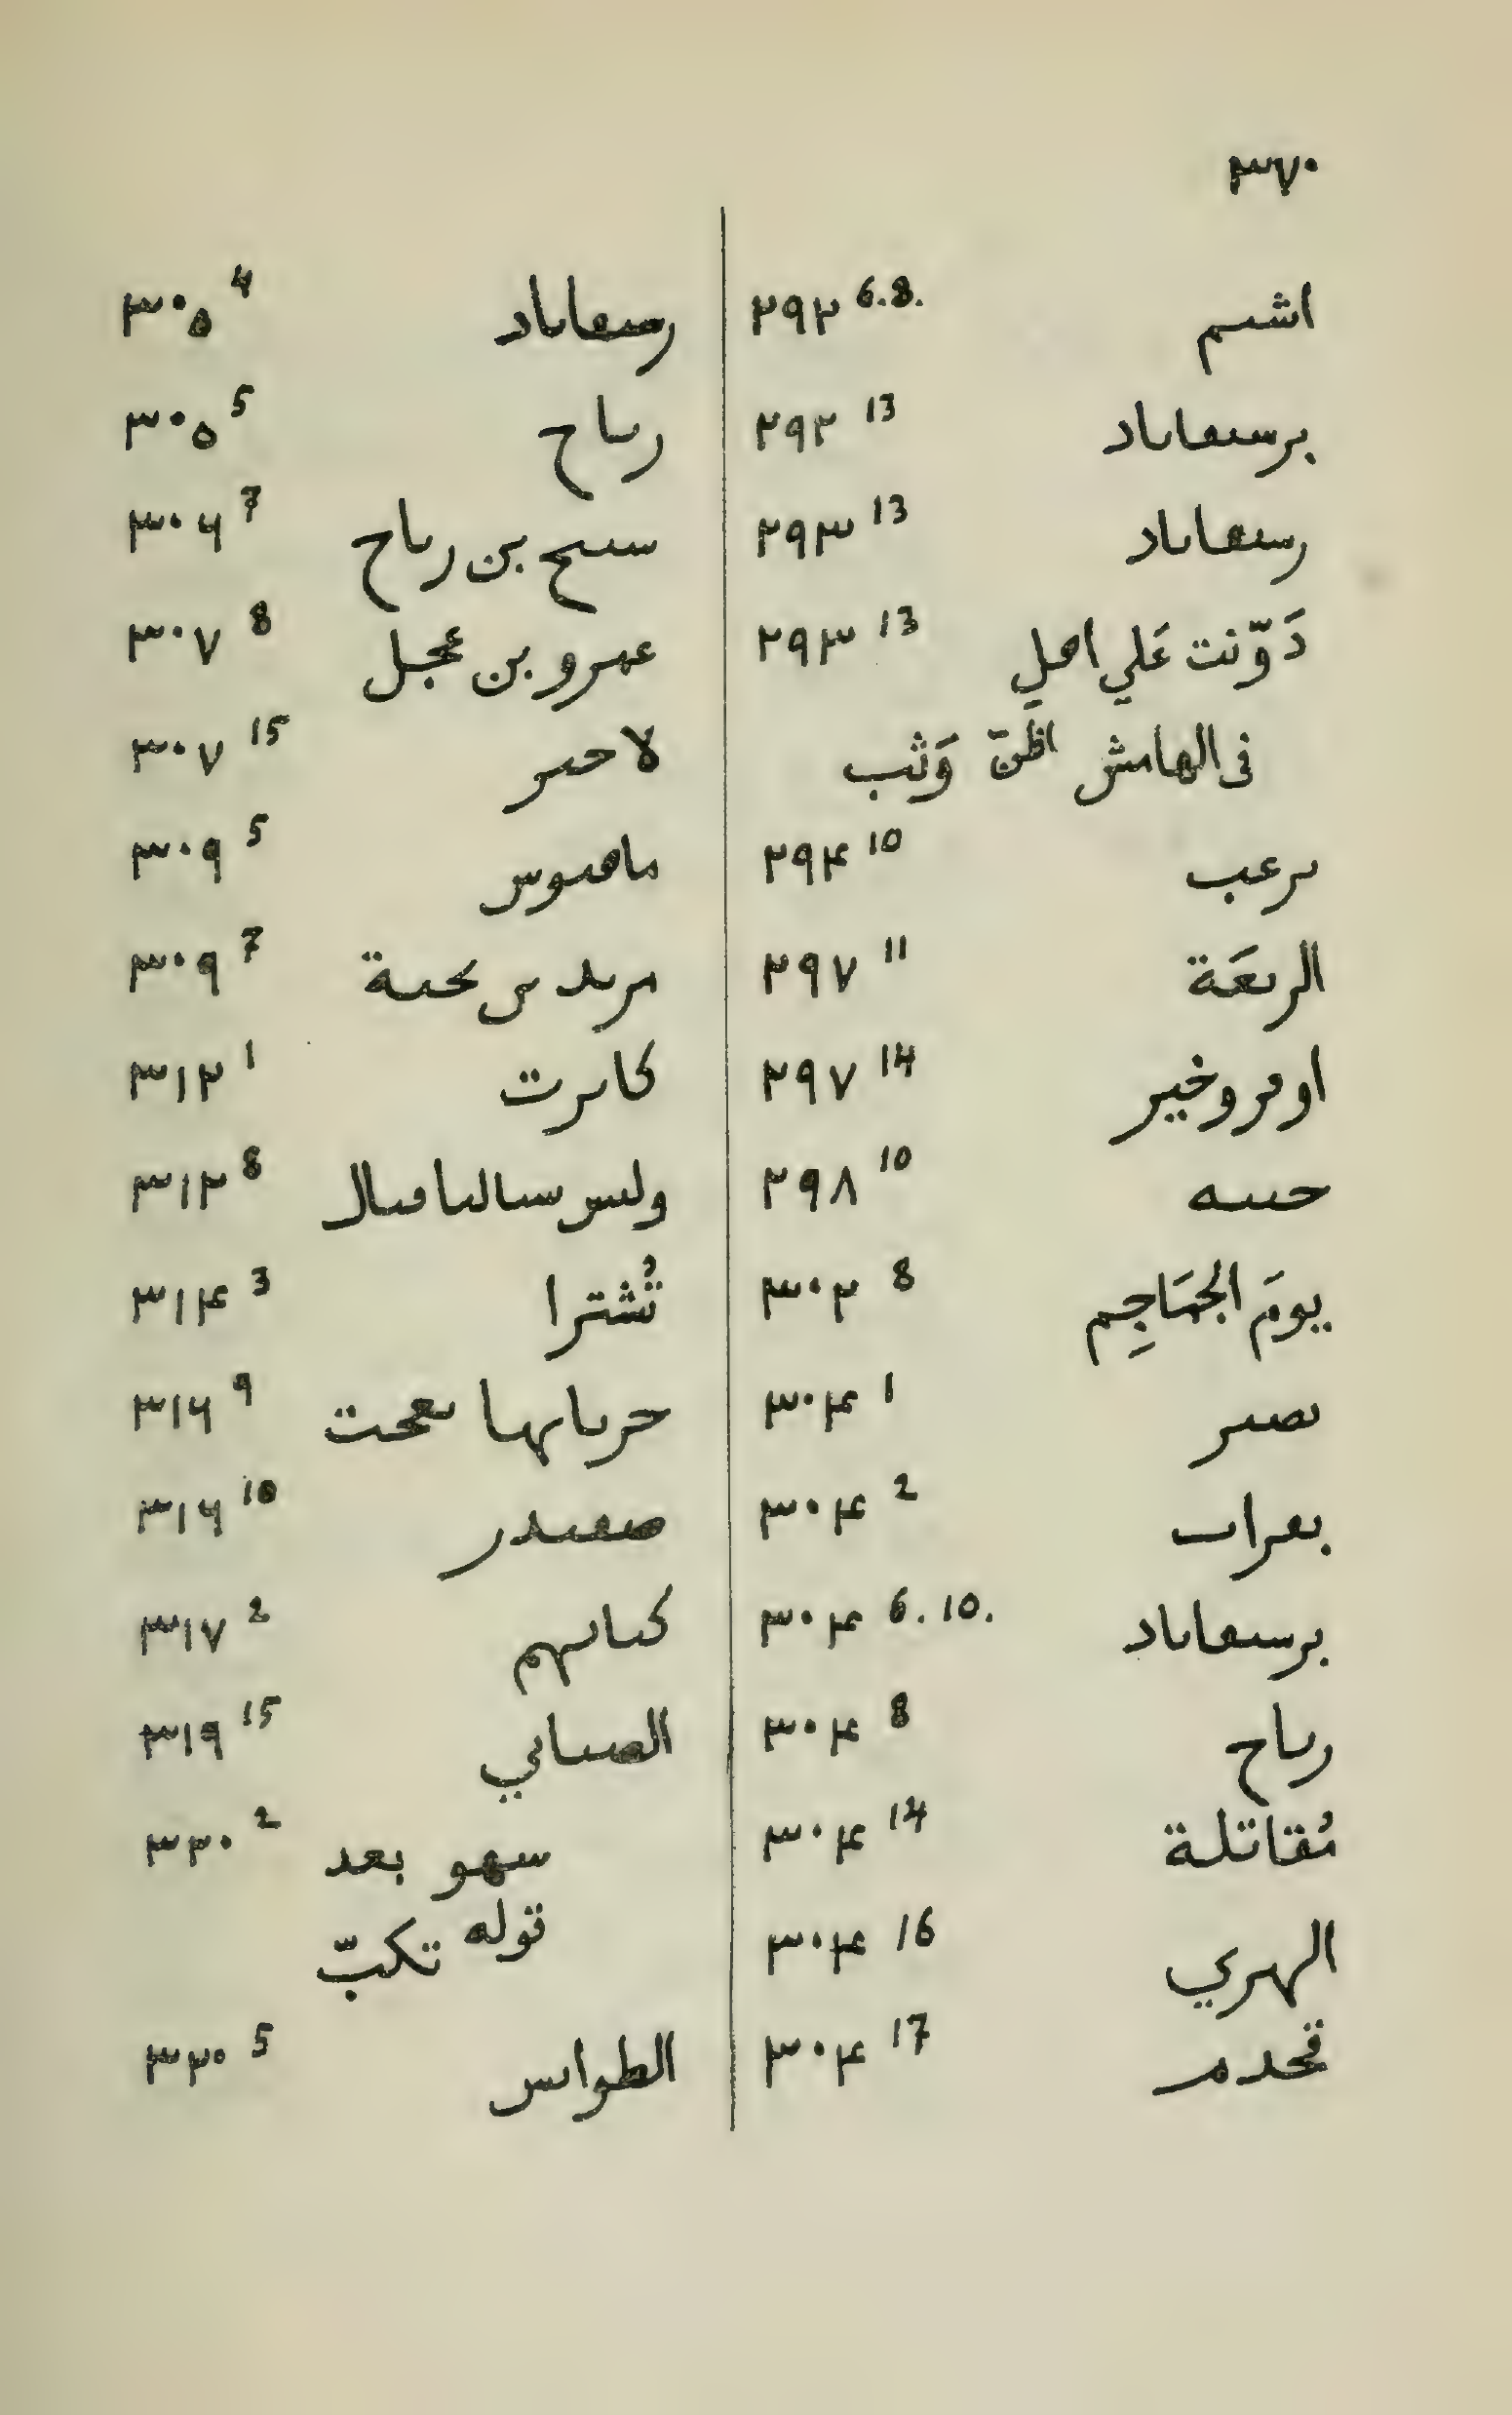 ٣٧٠
اشىم ٢٩٢ 6.8.
برسىعاىاد ٢٩٢ 13
رسىعاىاد ٢٩٣ 13
دَوّنت عَلي اهلِي ٢٩٣ 13
فى الهامش اظنّ وَثب
ىرعب ٢٩٤ 10
الرىعَة ٢٩٧ 11
اومروخير ٢٩٧ 14
حىىه ٢٩٨ 10
يومَ الجمَاجِم ٣٠٢ 8
ىصىر ٣٠٤ 1
بعراٮ ٣٠٤ 2
برسىعاىاد ٣٠٤ 6.10.
رىاح ٣٠٤ 8
مُقاتلة ٣٠٤ 14
الهري ٣٠٤ 16
قحدم ٣٠٤ 17
رسىعاىاد ٣٠٥ 4
رىاح ٣٠٥ 5
سىىح بن رىاح ٣٠٦ 7
عمرو بن عجل ٣٠٧ 8
لاحىر ٣٠٧ 15
ماهىوس ٣٠٩ 5
مرىد ىں ىحىة ٣٠٩ 7
كاىرت ٣١٢ 1
ولىس سىالىا مىال ٣١٢ 8
تُشترا ٣١٤ 3
حرىاىها ىعحت ٣١٦ 9
صعىدر ٣١٦ 10
كىاىهم ٣١٧ 2
الصىابي ٣١٩ 15
سهو بعد ٣٣٠ 2
قوله تكبّ
الطواىس ٣٣٠ 5